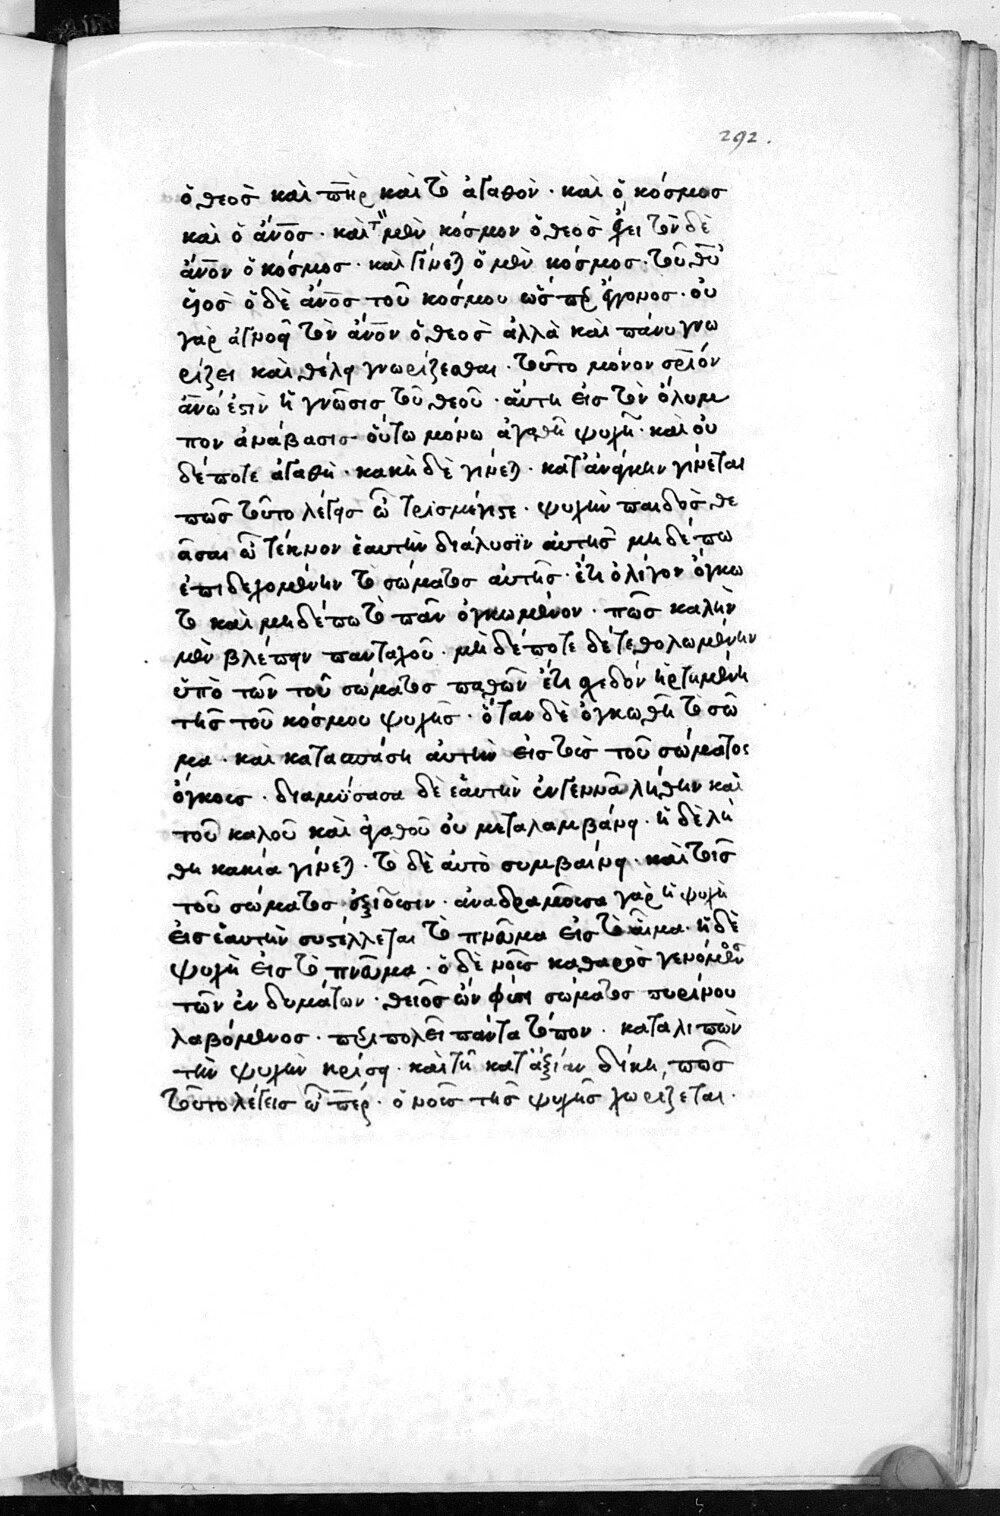 292.
ὁ θεὸσ καὶ π̅η̅ρ καὶ τὸ ἀγαθὸν · καὶ ὁ κόσμοσ
καὶ ὁ ἄν̅ο̅σ · καὶ τ μὲν κόσμον ὁ θεὸσ ἔχει τὸν δὲ
ἄν̅ο̅ν ὁ κόσμοσ · καὶ γίνε) ὁ μὲν κόσμοσ · τοῦ θ̅υ̅
ὑιὸσ ὁ δὲ ἄν̅ο̅σ τοῦ κόσμου ὥσπερ ἔγγονοσ · οὐ
γὰρ ἀγνοεῖ τὸν ἄν̅ο̅ν ὁ θεὸσ ἀλλὰ καὶ πάνυ γνω
ρίζει καὶ θέλει γνωρίζεσθαι · τοῦτο μόνον σ̅ρ̅ιόν
ἀν̅ω̅ ἐστὶν ἡ γνῶσισ τοῦ θεοῦ · αὕτη εἰσ τὸν ὄλυμ
πον ἀνάβασισ οὕτω μόνω ἀγαθὴ ψυχὴ · καὶ οὐ
δέποτε ἀγαθὴ · κακὴ δὲ γίνε) · κατ' ἀνάγκην γίνεται
πῶσ τοῦτο λέγεισ ὦ τρισμέγιστε · ψυχὴν παιδὸσ θε
ᾶσαι ὦ τέκνον ἑαυτὴν διάλυσϊν αὐτῆσ μηδέπω
ἐπιδεχομένην τὸ σώματοσ αὐτῆσ · ἔτι ὀλίγον ὄγκω
τ καὶ μηδέπω τὸ πᾶν ὀγκωμένον · πῶσ καλὴν
μὲν βλέπειν πανταχοῦ · μὴ δέποτε δὲ τεθολωμένην
ὑπὸ τῶν τοῦ σώματοσ παθῶν ἔτι σχεδὸν ἠρτημένη
τῆσ τοῦ κόσμου ψυχῆσ · ὅταν δὲ ὀγκωθῆ τὸ σῶ
μα · καὶ κατασπάση αὐτὴν εἰσ τοὺσ τοῦ σώματοσ
ὄγκουσ · διαμύσασα δὲ ἑαυτὴν ἐγγεννᾶ λήθην καὶ
τοῦ καλοῦ καὶ ἀγαθοῦ οὐ μεταλαμβάνει · ἡ δὲ λή
θη κακία γίνε) · τὸ δὲ αὐτὸ συμβαίνει · καὶ τοῖσ
τοῦ σώματοσ ἐξιοῦσιν · ἀναδραμοῦσα γὰρ ἡ ψυχὴ
εἰσ ἑαυτὴν συστέλλεται τὸ πνεῦμα εἰσ τὸ αἷμα · ἡ δὲ
ψυχὴ εἰσ τὸ πνεῦμα · ὁ δὲ νοῦσ καθαρὸσ γενόμενοσ
τῶν ἐνδυμάτων · θεῖοσ ὢν φύσει σώματοσ πυρίνου
λαβόμενοσ · περιπολεῖ πάντα τόπον · καταλιπὼν
τὴν ψυχὴν κρίσει · καὶ τῆ κατ' ἀξίαν δίκη, πῶσ
τοῦτο λέγεισ ὦ π̅ε̅ρ · ὁ νοῦσ τῆσ ψυχῆσ χωρίζεται ·